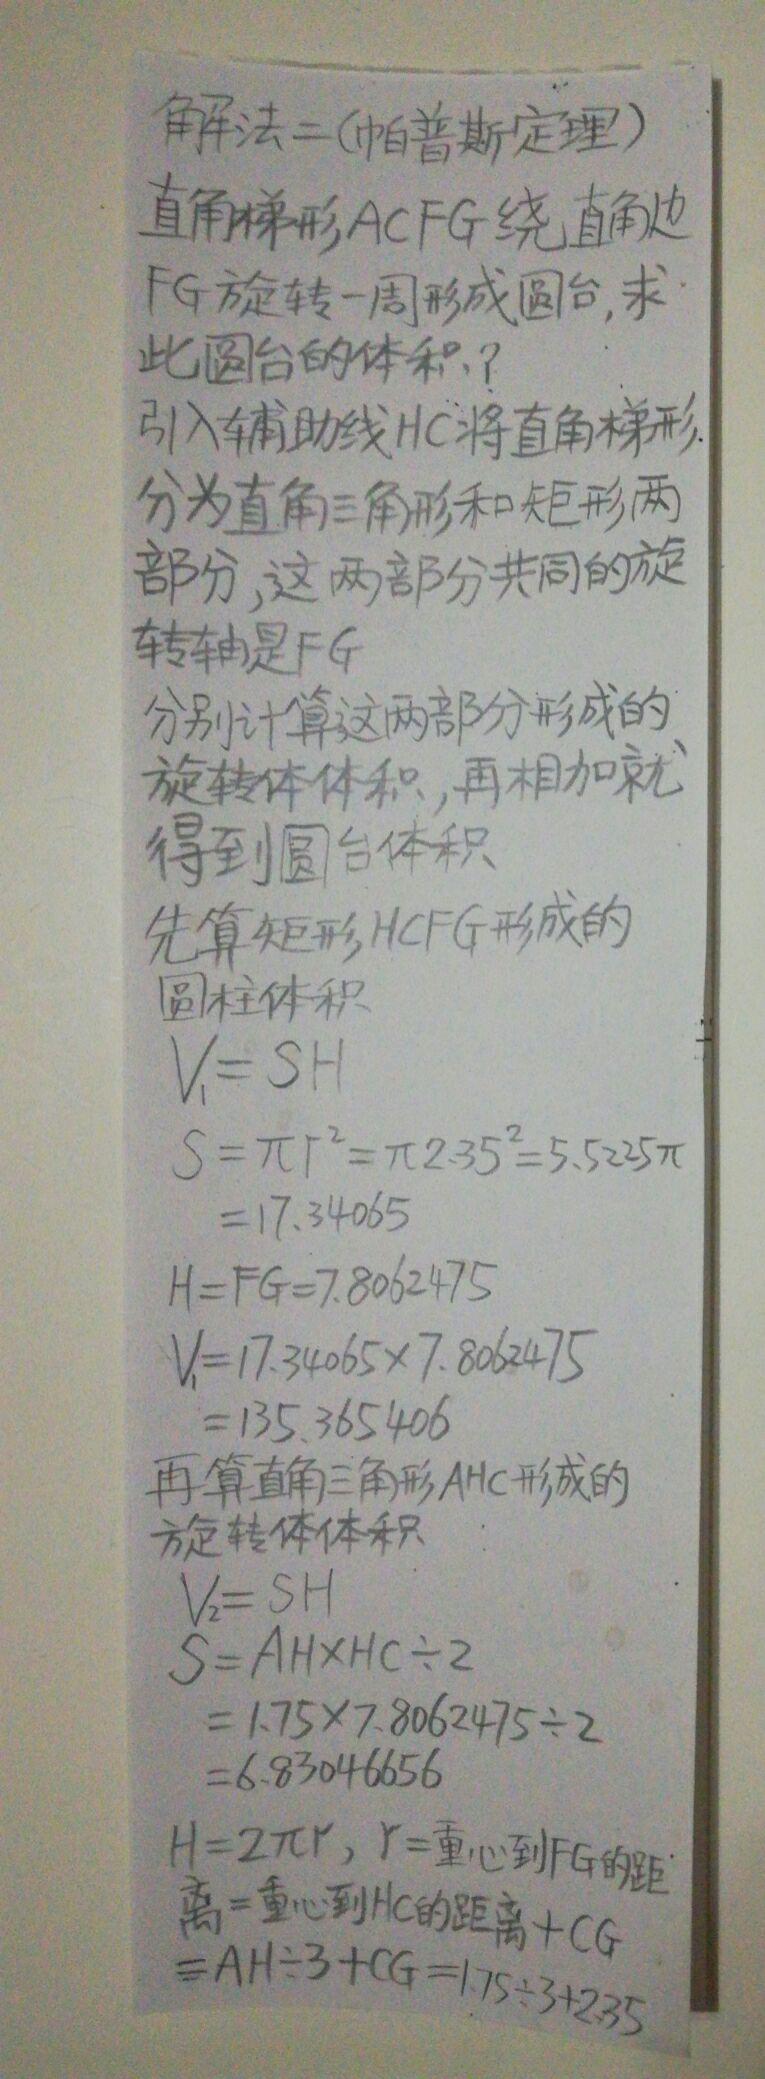 解法二(帕普斯定理)
直角梯形ACFG绕直角边
FG旋转一周形成圆台,求
此圆台的体积.?
引入辅助线HC将直角梯形
分为直角三角形和矩形两
部分,这两部分共同的旋
转轴是FG
分别计算这两部分形成的
旋转体体积,再相加就
得到圆台体积
先算矩形HCFG形成的
圆柱体积
V₁=SH
S=πr²=π2.35²=5.5225π
=17.34065
H=FG=7.8062475
V₁=17.34065×7.8062475
=135.365406
再算直角三角形AHC形成的
旋转体体积
V₂=SH
S=AH×HC÷2
=1.75×7.8062475÷2
=6.83046656
H=2πr, r=重心到FG的距
离=重心到HC的距离+CG
=AH÷3+CG=1.75÷3+2.35